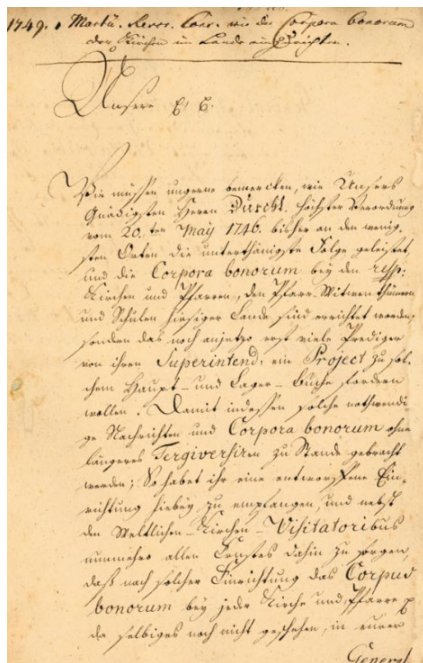 1749. 1 Martii. Rever. Cons. wie die Corpora bonorum
der Kirchen im Lande einzurichten.
Unsere
Wir müssen ungerne bemercken, wie Unsers
Gnädigsten Herrn Durchl. höchster Verordnung
vom 20.ten May 1746. bisher an den wenig-
sten Orten die unterthänigste Folge geleistet,
und die Corpora bonorum bey den resp:
Kirchen und Pfarren, den Pfarr-Witwenthümern
und Schulen hiesiger Lande sind errichtet worden,
sondern das noch anjetzo erst viele Prediger
von ihren Superintend: ein Project zu sol-
chem Haupt- und Lager-Buche fordern
wollen. Damit indessen solche nothwendi-
ge Nachrichten und Corpora bonorum ohne
längeres Tergiversiren zu Stande gebracht
werden; So habet ihr eine entworffene Ein-
richtung hiebey zu empfangen, und nebst
den Weltlichen-Kirchen-Visitatoribus
nunmehro allen Ernstes dahin zu sorgen,
daß nach solcher Einrichtung das Corpus
bonorum bey jeder Kirche und Pfarre
da selbiges noch nicht geschehen, in eurer
General